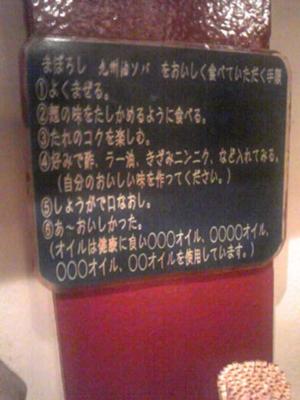 まぼろし 九州油ソバ をおいしく食べていただく手順
①よくまぜる。
②麺の味をたしかめるように食べる。
③たれのコクを楽しむ。
④好みで酢、ラー油、きざみニンニク、など入れてみる。
(自分のおいしい味を作ってください。)
⑤しょうがで口なおし。
⑥あ〜おいしかった。
(オイルは健康に良い○○○オイル、○○○○オイル、
○○○オイル、○○オイルを使用しています。)